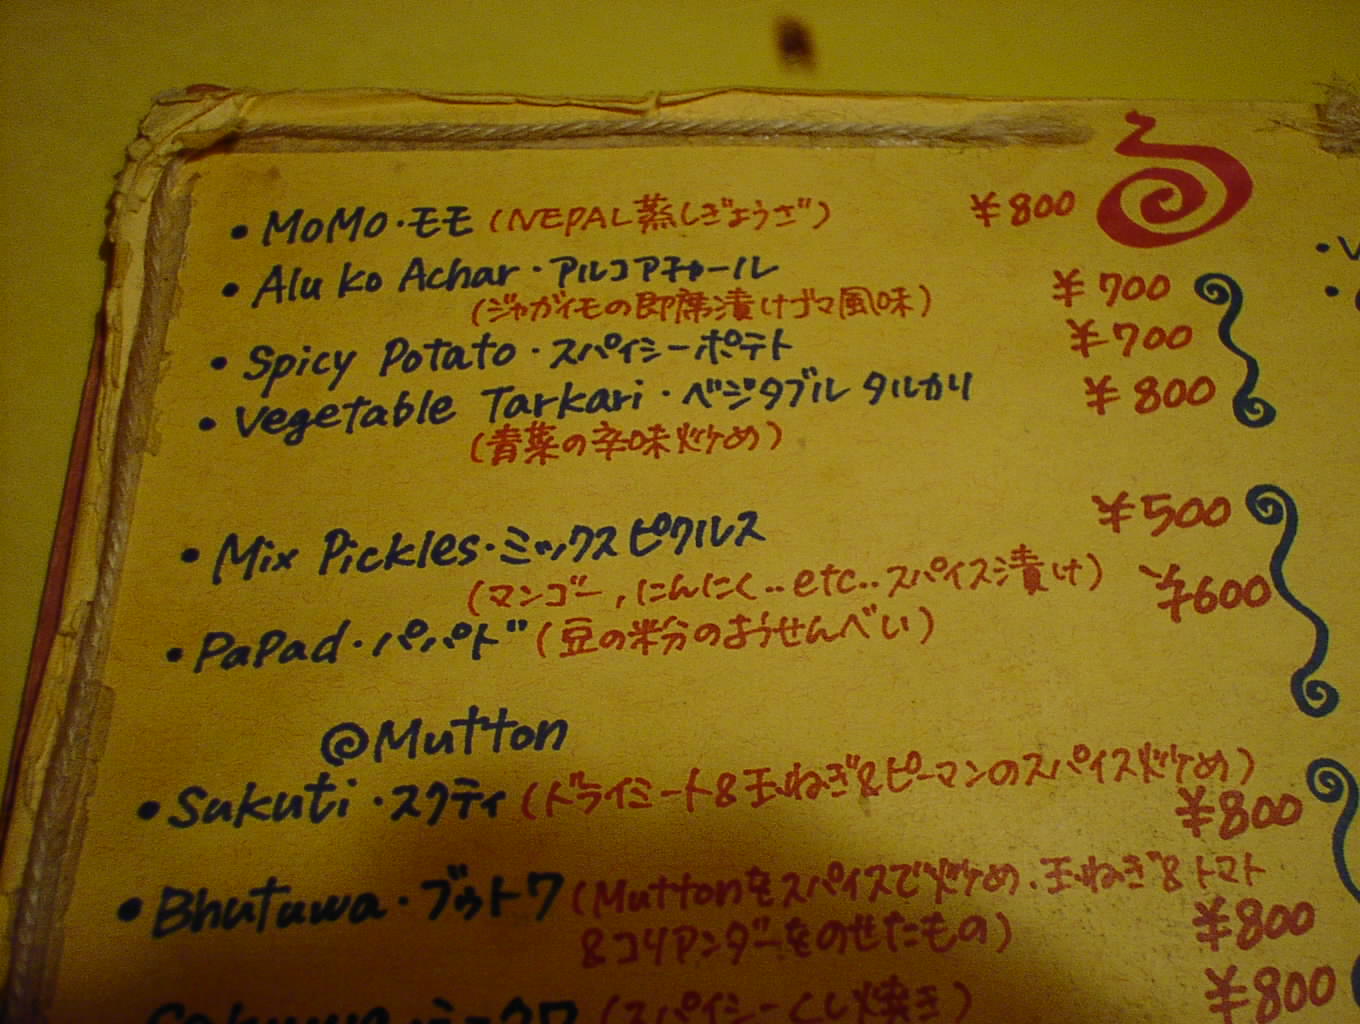 • MoMo・モモ (NEPAL蒸しぎょうざ) ¥800
• Alu ko Achar・アルコアチャール
(ジャガイモの即席漬けゴマ風味) ¥700
• Spicy Potato・スパイシーポテト ¥700
• Vegetable Tarkari・ベジタブル タルカリ ¥800
(青菜の辛味炒め)
• Mix Pickles・ミックスピクルス ¥500
(マンゴー, にんにく..etc..スパイス漬け)
• PaPad・パパド (豆の粉分のおうせんべい) ¥600
@Mutton
• Sukuti・スクティ (ドライミート&玉ねぎ&ピーマンのスパイス炒め)
¥800
• Bhutuwa・ブゥトワ (Muttonをスパイスで炒め.玉ねぎ&トマト
&コリアンダーをのせたもの) ¥800
(スパイシーくし焼き) ¥800